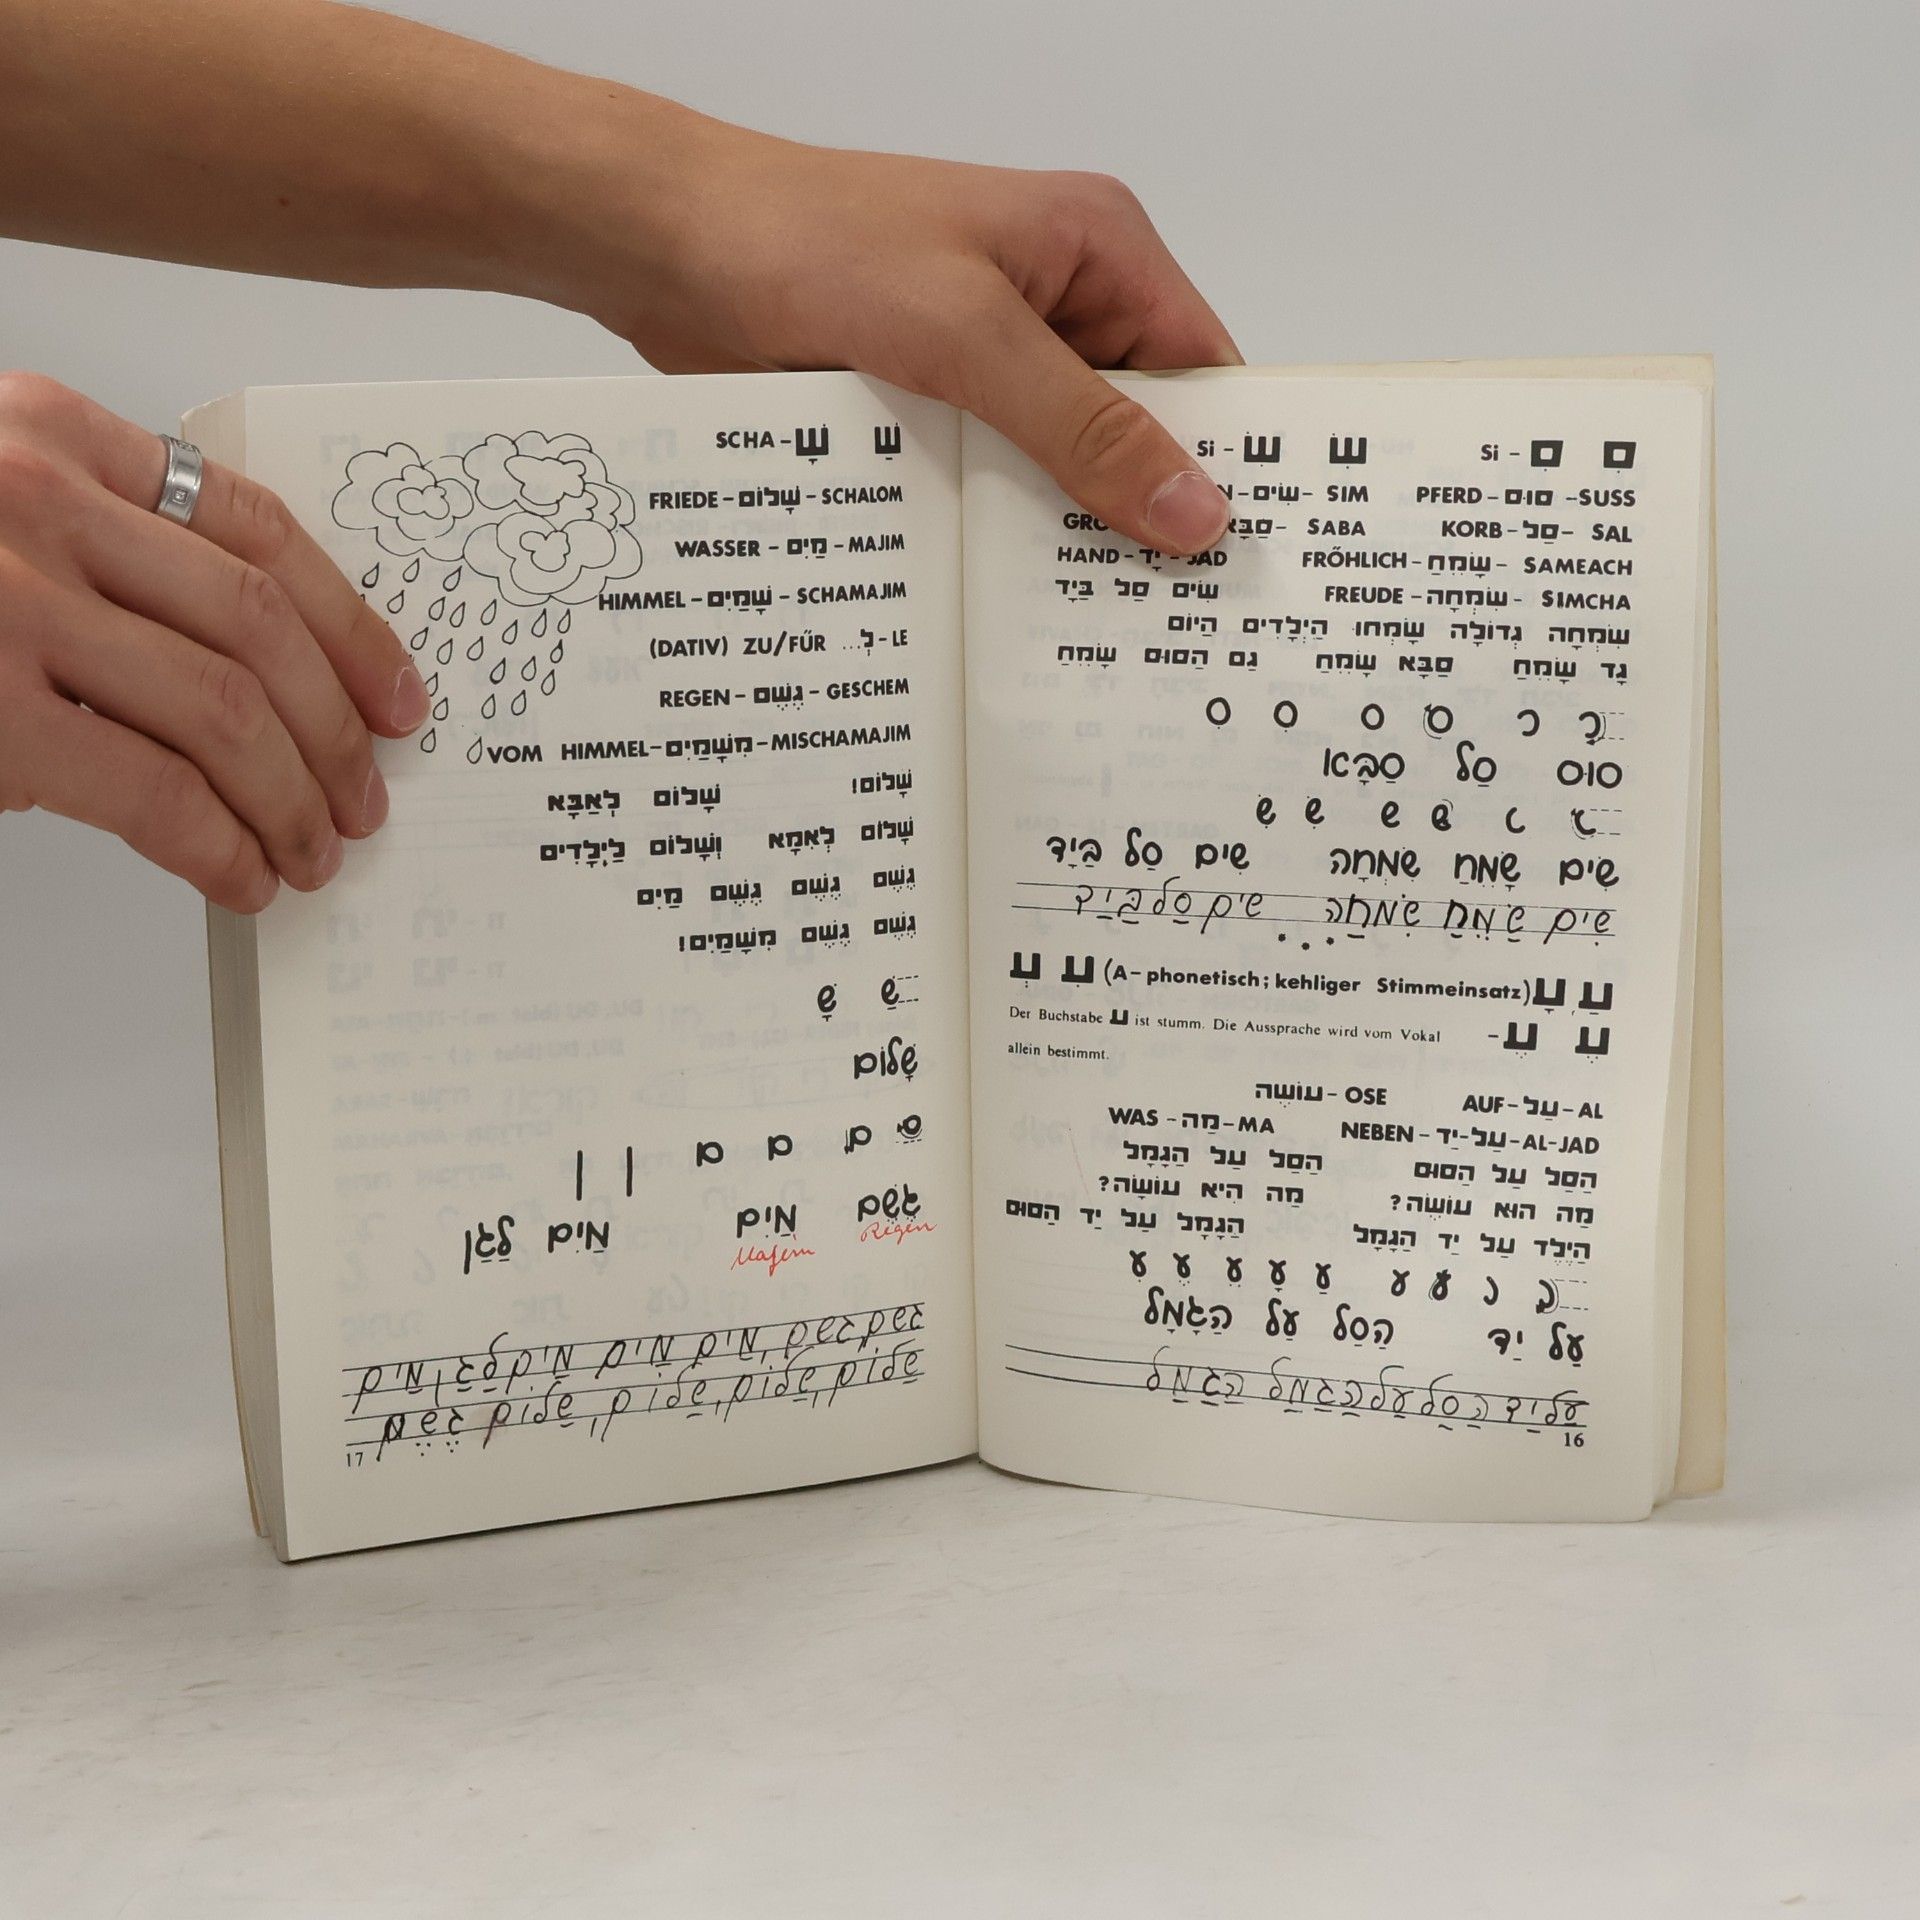 Si - סָ סַ
PFERD - סוּס - SUSS
KORB - סַל - SAL
FRÖHLICH - שָׂמֵחַ - SAMEACH
FREUDE - שִׂמְחָה - SIMCHA
Si - שָׂ שַׂ
שִׂים - SIM
סַבָּא - SABA
HAND - יָד - JAD
שִׂים סַל בַּיָּד
שִׂמְחָה גְדוֹלָה שָׂמְחוּ הַיְלָדִים הַיּוֹם
גָד שָׂמֵחַ סַבָּא שָׂמֵחַ גַם הַסוּס שָׂמֵחַ
סוּס סַל סַבָּא
שִׂים שָׂמֵחַ שִׂמְחָה שִׂים סַל בַּיָּד
שִׂים שָׂמֵחַ שִׂמְחַה שִׂים סַל בַּיַד
עַ עָ (A - phonetisch; kehliger Stimmeinsatz)
Der Buchstabe ע ist stumm. Die Aussprache wird vom Vokal
allein bestimmt.
AUF - עַל - AL
עוֹשֶׂה - OSE
NEBEN - עַל-יַד - AL-JAD
WAS - מַה - MA
הַסַל עַל הַסוּס הַסַל עַל הַגָמָל
מַה הוּא עוֹשֶׂה? מַה הִיא עוֹשָׂה?
הַיֶלֶד עַל יַד הַגָמָל הַגָמָל עַל יַד הַסוּס
עַל יַד הַסַל עַל הַגָמָל
16
SCHA - שָׁ שַׁ
FRIEDE - שָׁלוֹם - SCHALOM
WASSER - מַיִם - MAJIM
HIMMEL - שָׁמַיִם - SCHAMAJIM
(DATIV) ZU/FÜR ...לְ - LE
REGEN - גֶשֶׁם - GESCHEM
VOM HIMMEL - מִשָׁמַיִם - MISCHAMAJIM
שָׁלוֹם! שָׁלוֹם לְאַבָּא
שָׁלוֹם לְאִמָא וְשָׁלוֹם לַיְלָדִים
גֶשֶׁם גֶשֶׁם גֶשֶׁם מַיִם
גֶשֶׁם גֶשֶׁם מִשָׁמַיִם!
שַׁ שָׁ
שָׁלוֹם
גֶשֶׁם מַיִם מַיִם לַגַן
Regen Majim
17